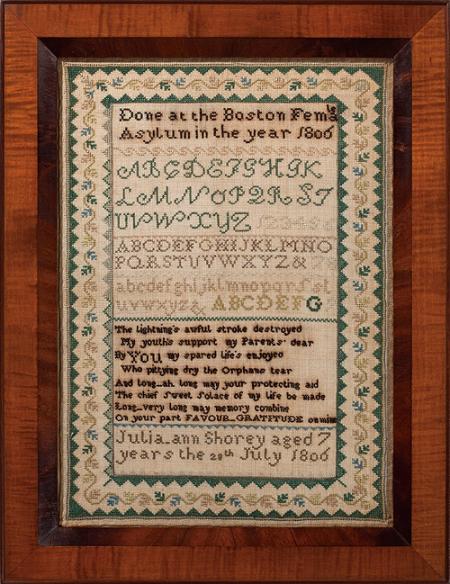 Done at the Boston Femle
Asylum in the year 1806
ABCDEFGHIK
LMNOPQRST
UVWXYZ 123456
ABCDEFGHIJKLMNO
PQRSTUVWXYZ &
abcdefghijklmnopqrſst
uvwxyz& ABCDEFG
The lightning's awful stroke destroyed
My youth's support my Parents dear
By You my spared life's enjoyed
Who pittying dry the Orphans tear
And long_ah. long may your protecting aid
The chief Sweet Solace of my life be made
Long_very long may memory combine
On your part FAVOUR_GRATITUDE on mine
Julia_ann Shorey aged 7
years the 28th July 1806